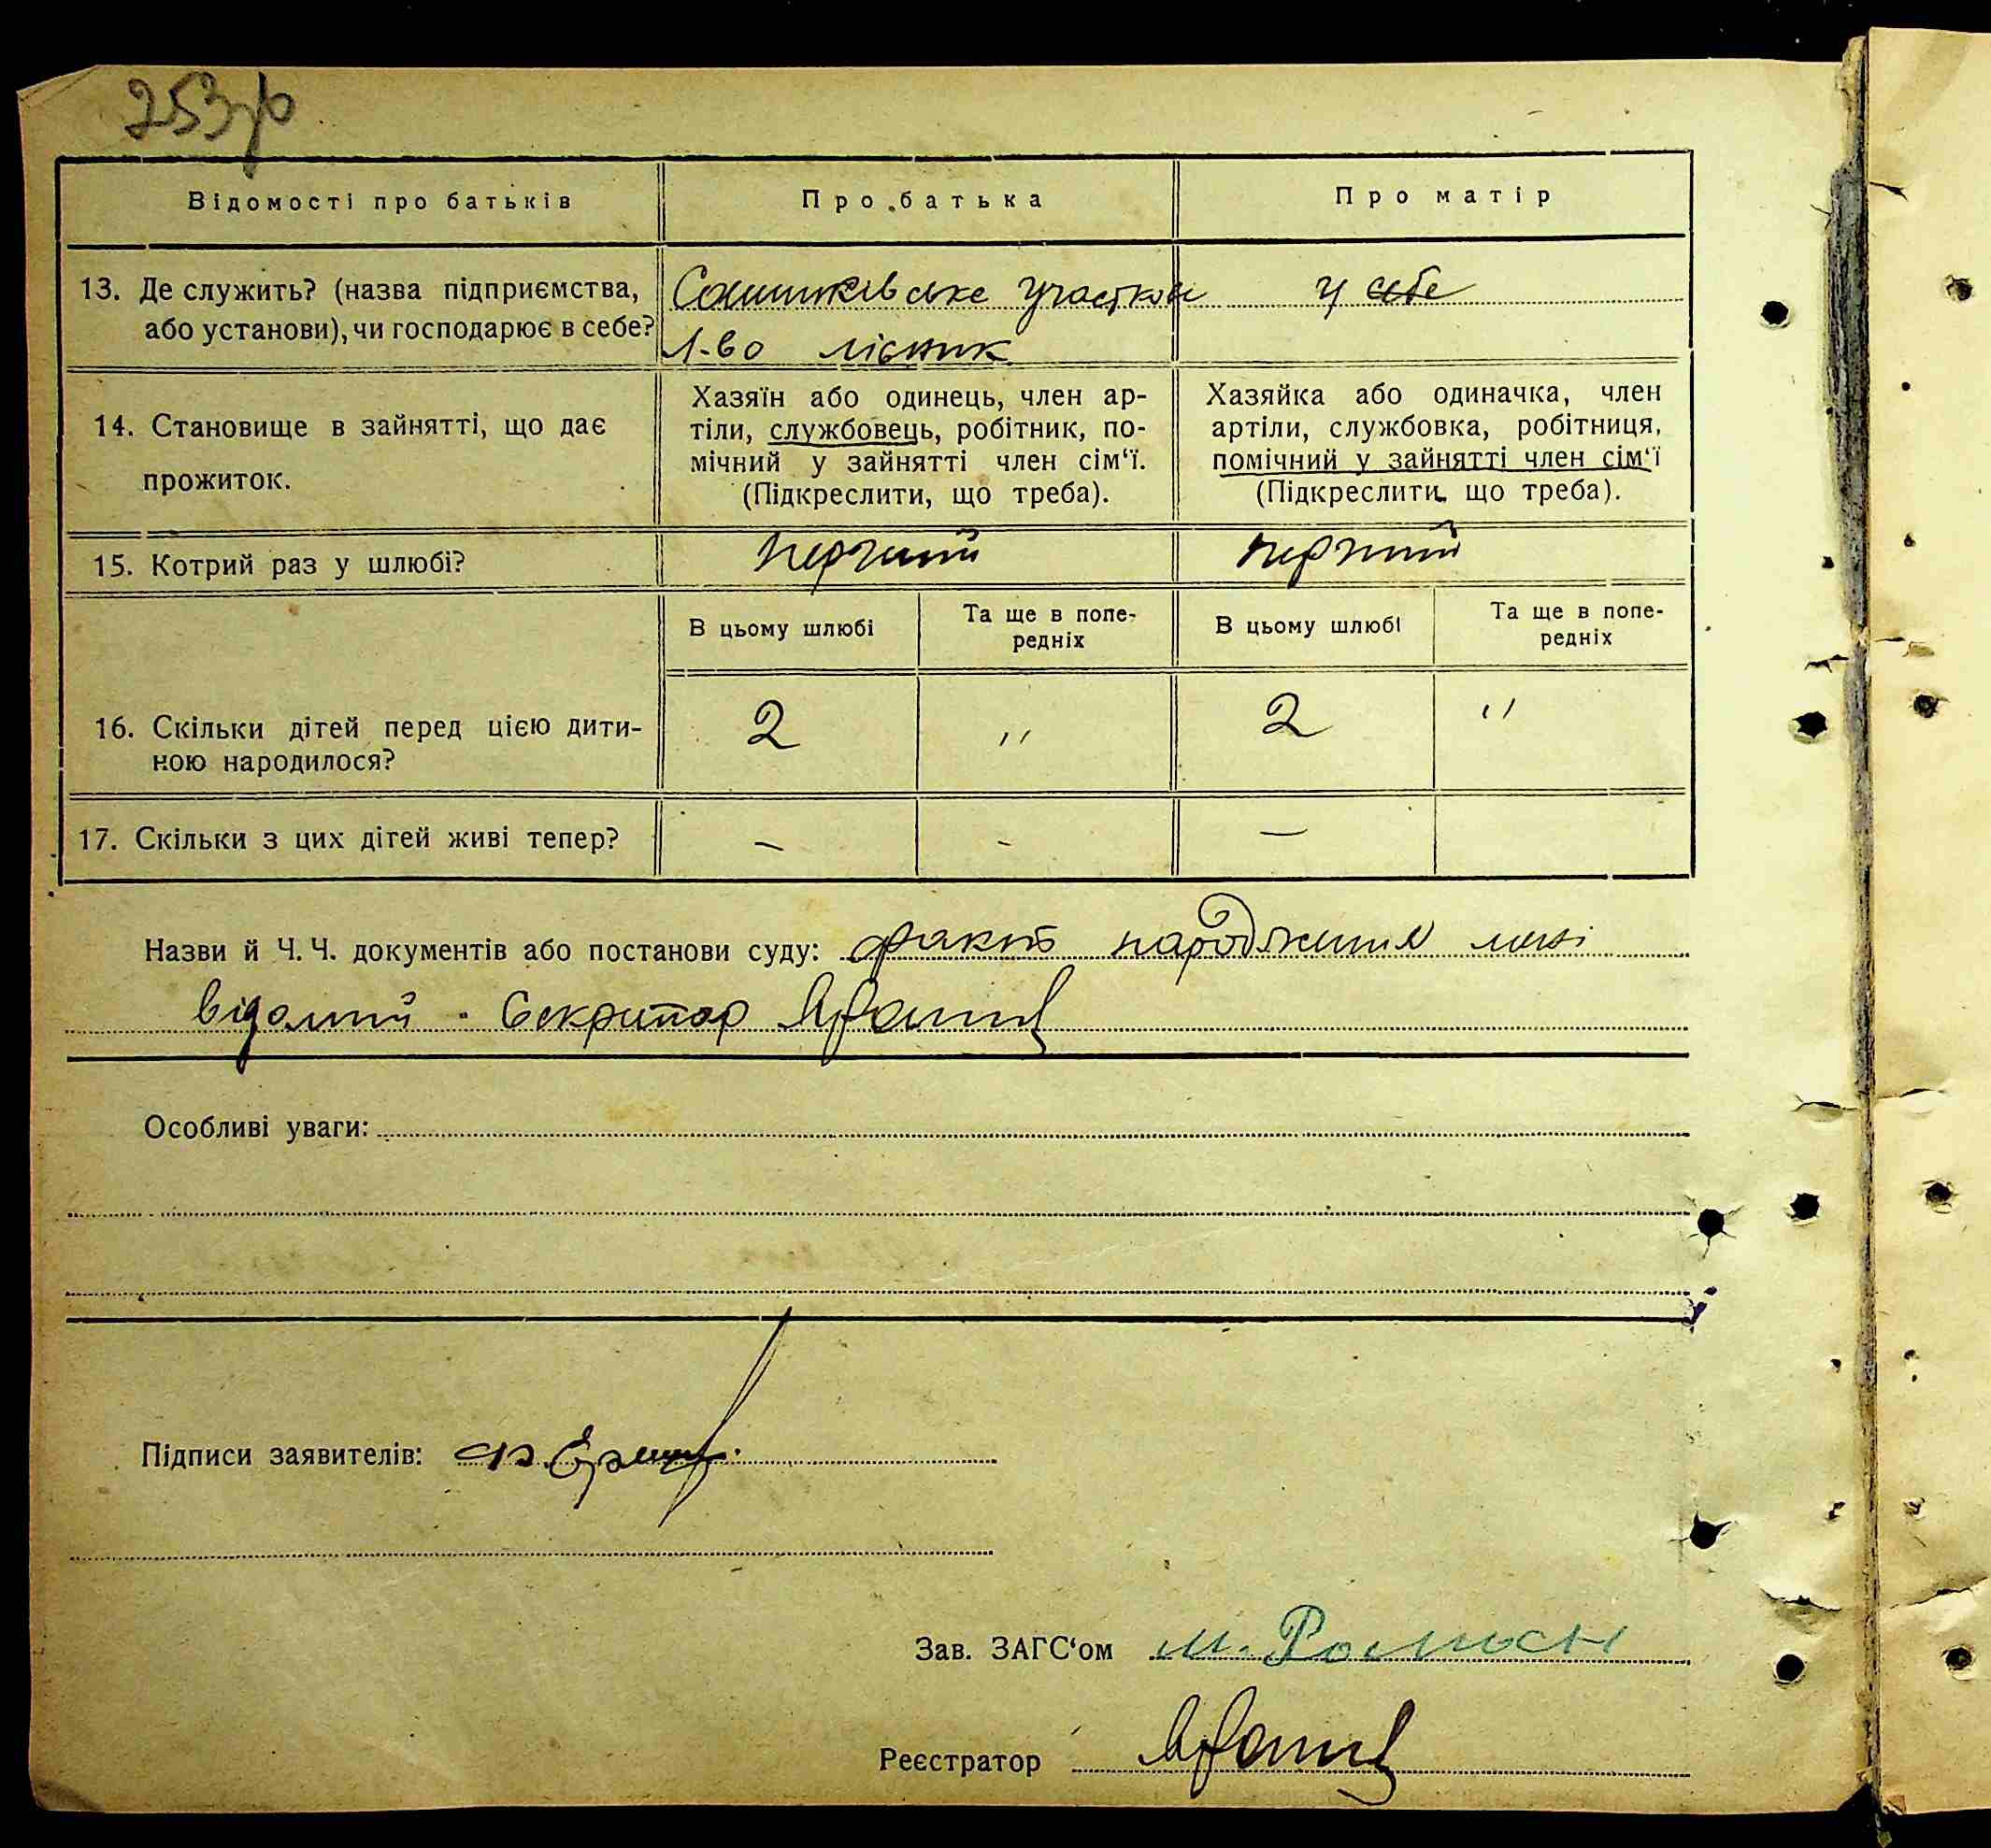 253
Відомості про батьків
Про батька
Про матір
13. Де служить? (назва підприємства,
або установи), чи господарює в себе?
участкове
л-во лісник
у себе
14. Становище в зайнятті, що дає
прожиток.
Хазяїн або одинець, член ар-
тіли, службовець, робітник, по-
мічний у зайнятті член сім‘ї.
(Підкреслити, що треба).
Хазяйка або одиначка, член
артіли, службовка, робітниця,
помічний у зайнятті член сім‘ї
(Підкреслити, що треба).
15. Котрий раз у шлюбі?
перший
перший
В цьому шлюбі
Та ще в попе-
редніх
В цьому шлюбі
Та ще в попе-
редніх
16. Скільки дітей перед цією дити-
ною народилося?
2
"
2
"
17. Скільки з цих дітей живі тепер?
–
-
—
Назви й Ч. Ч. документів або постанови суду: факт народження мені
відомий. Секритар
Особливі уваги:
Підписи заявителів:
Зав. ЗАГС‘ом
Реєстратор